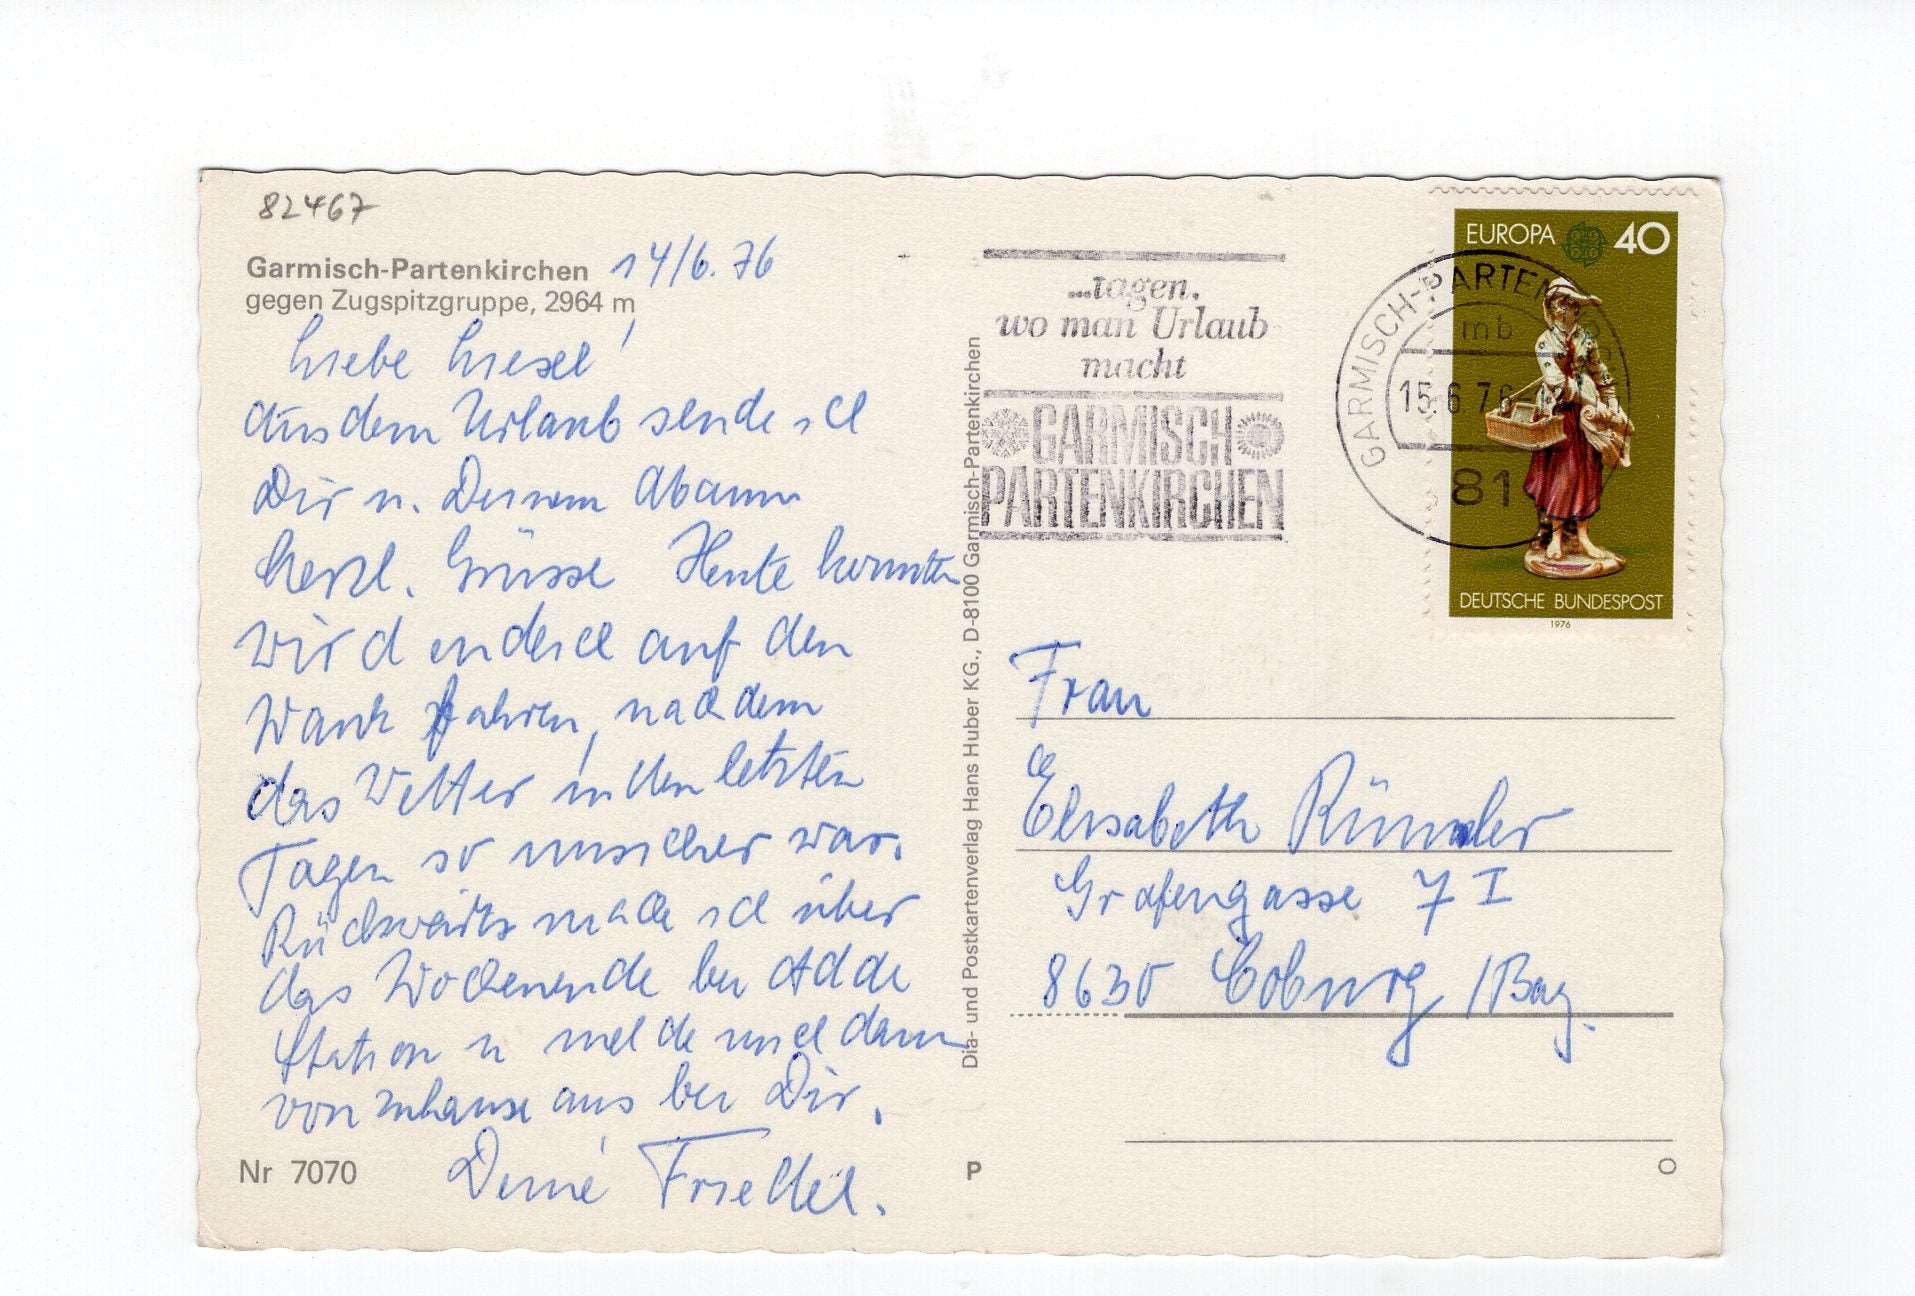 82467
Garmisch-Partenkirchen 14/6.76
gegen Zugspitzgruppe, 2964 m
Liebe Liesel!
aus dem Urlaub sende ich
Dir u. Deinem
herzl. Grüsse Heute konnten
wir endlich auf den
Wank fahren, nachdem
das Wetter in den letzten
Tagen so unsicher war.
Rückwärts mache ich über
das Wochenende bei
Station u melde mich dann
von zuhause aus bei Dir.
Deine Friedel.
Nr 7070
Dia- und Postkartenverlag Hans Huber KG., D-8100 Garmisch-Partenkirchen
P
...tagen,
wo man Urlaub
macht
GARMISCH
PARTENKIRCHEN
GARMISCH-PARTENKIRCHEN
mb
15.6.76-12
81
EUROPA 40
DEUTSCHE BUNDESPOST
1976
Frau
Elisabeth
Grafengasse 7 I
8630 Coburg /Bay.
O